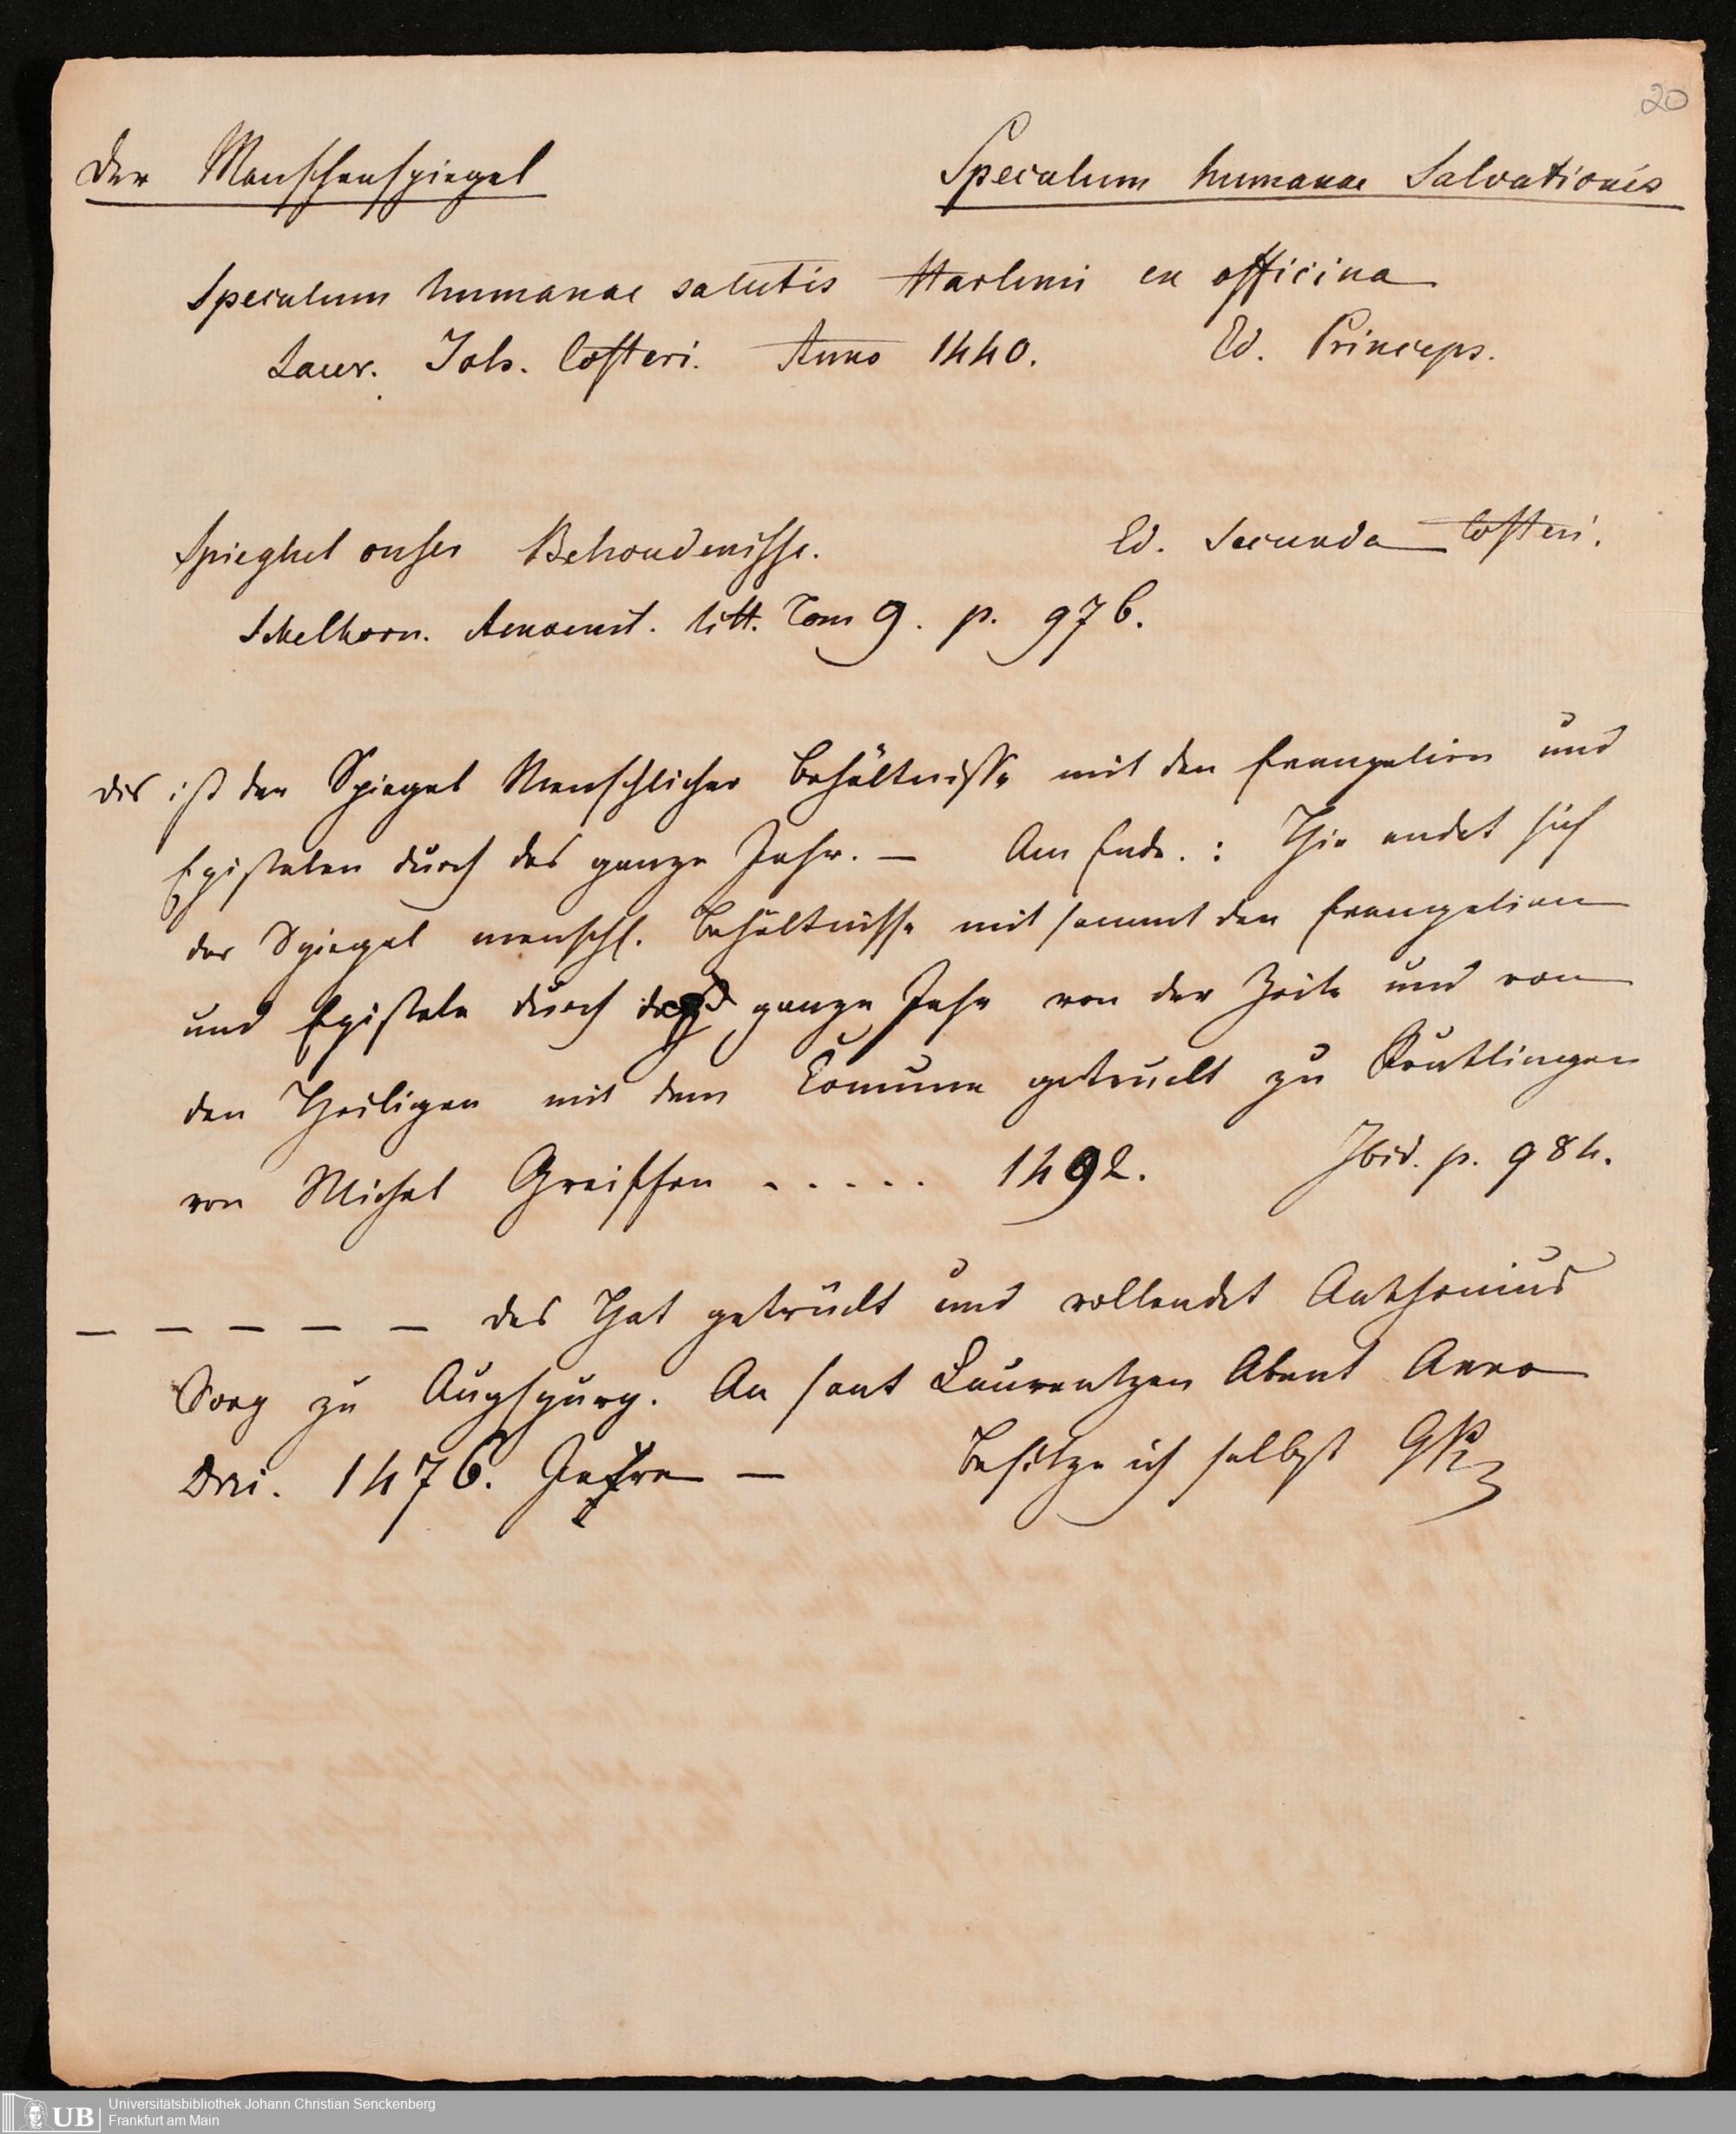 20
Der Menschenspiegel Speculum humanae Salvationis
Speculum humanae salutis Harlemi ex officina
Laur. Joh. Costeri. Anno 1440. Ed. Princeps.
Spieghel onser Behoudenisse. Ed. Secunda Costeri.
Schelhorn. Amoenit. litt. Tom 9. p. 976.
Dis ist der Spiegel Menschlicher Behältnisse mit den Evangelien und
Epistelen durch das ganze Jahr. — Am Ende. : Hie endet sich
der Spiegel menschl. Behältnisse mit sammt den Evangelien
und Epistele durch das ganze Jahr von der Zeite und von
den Heiligen mit dem Comune getruckt zu Reutlingen
von Michel Greiffen . . . . . 1492. Ibid. p. 984.
— — — — — das Hat getrückt und vollendet Anthonius
Sorg zu Augspurg. An sant Laurentzen Abent Anno
Dni. 1476. Jahre — Besitze ich selbst
Universitätsbibliothek Johann Christian Senckenberg
Frankfurt am Main
UB